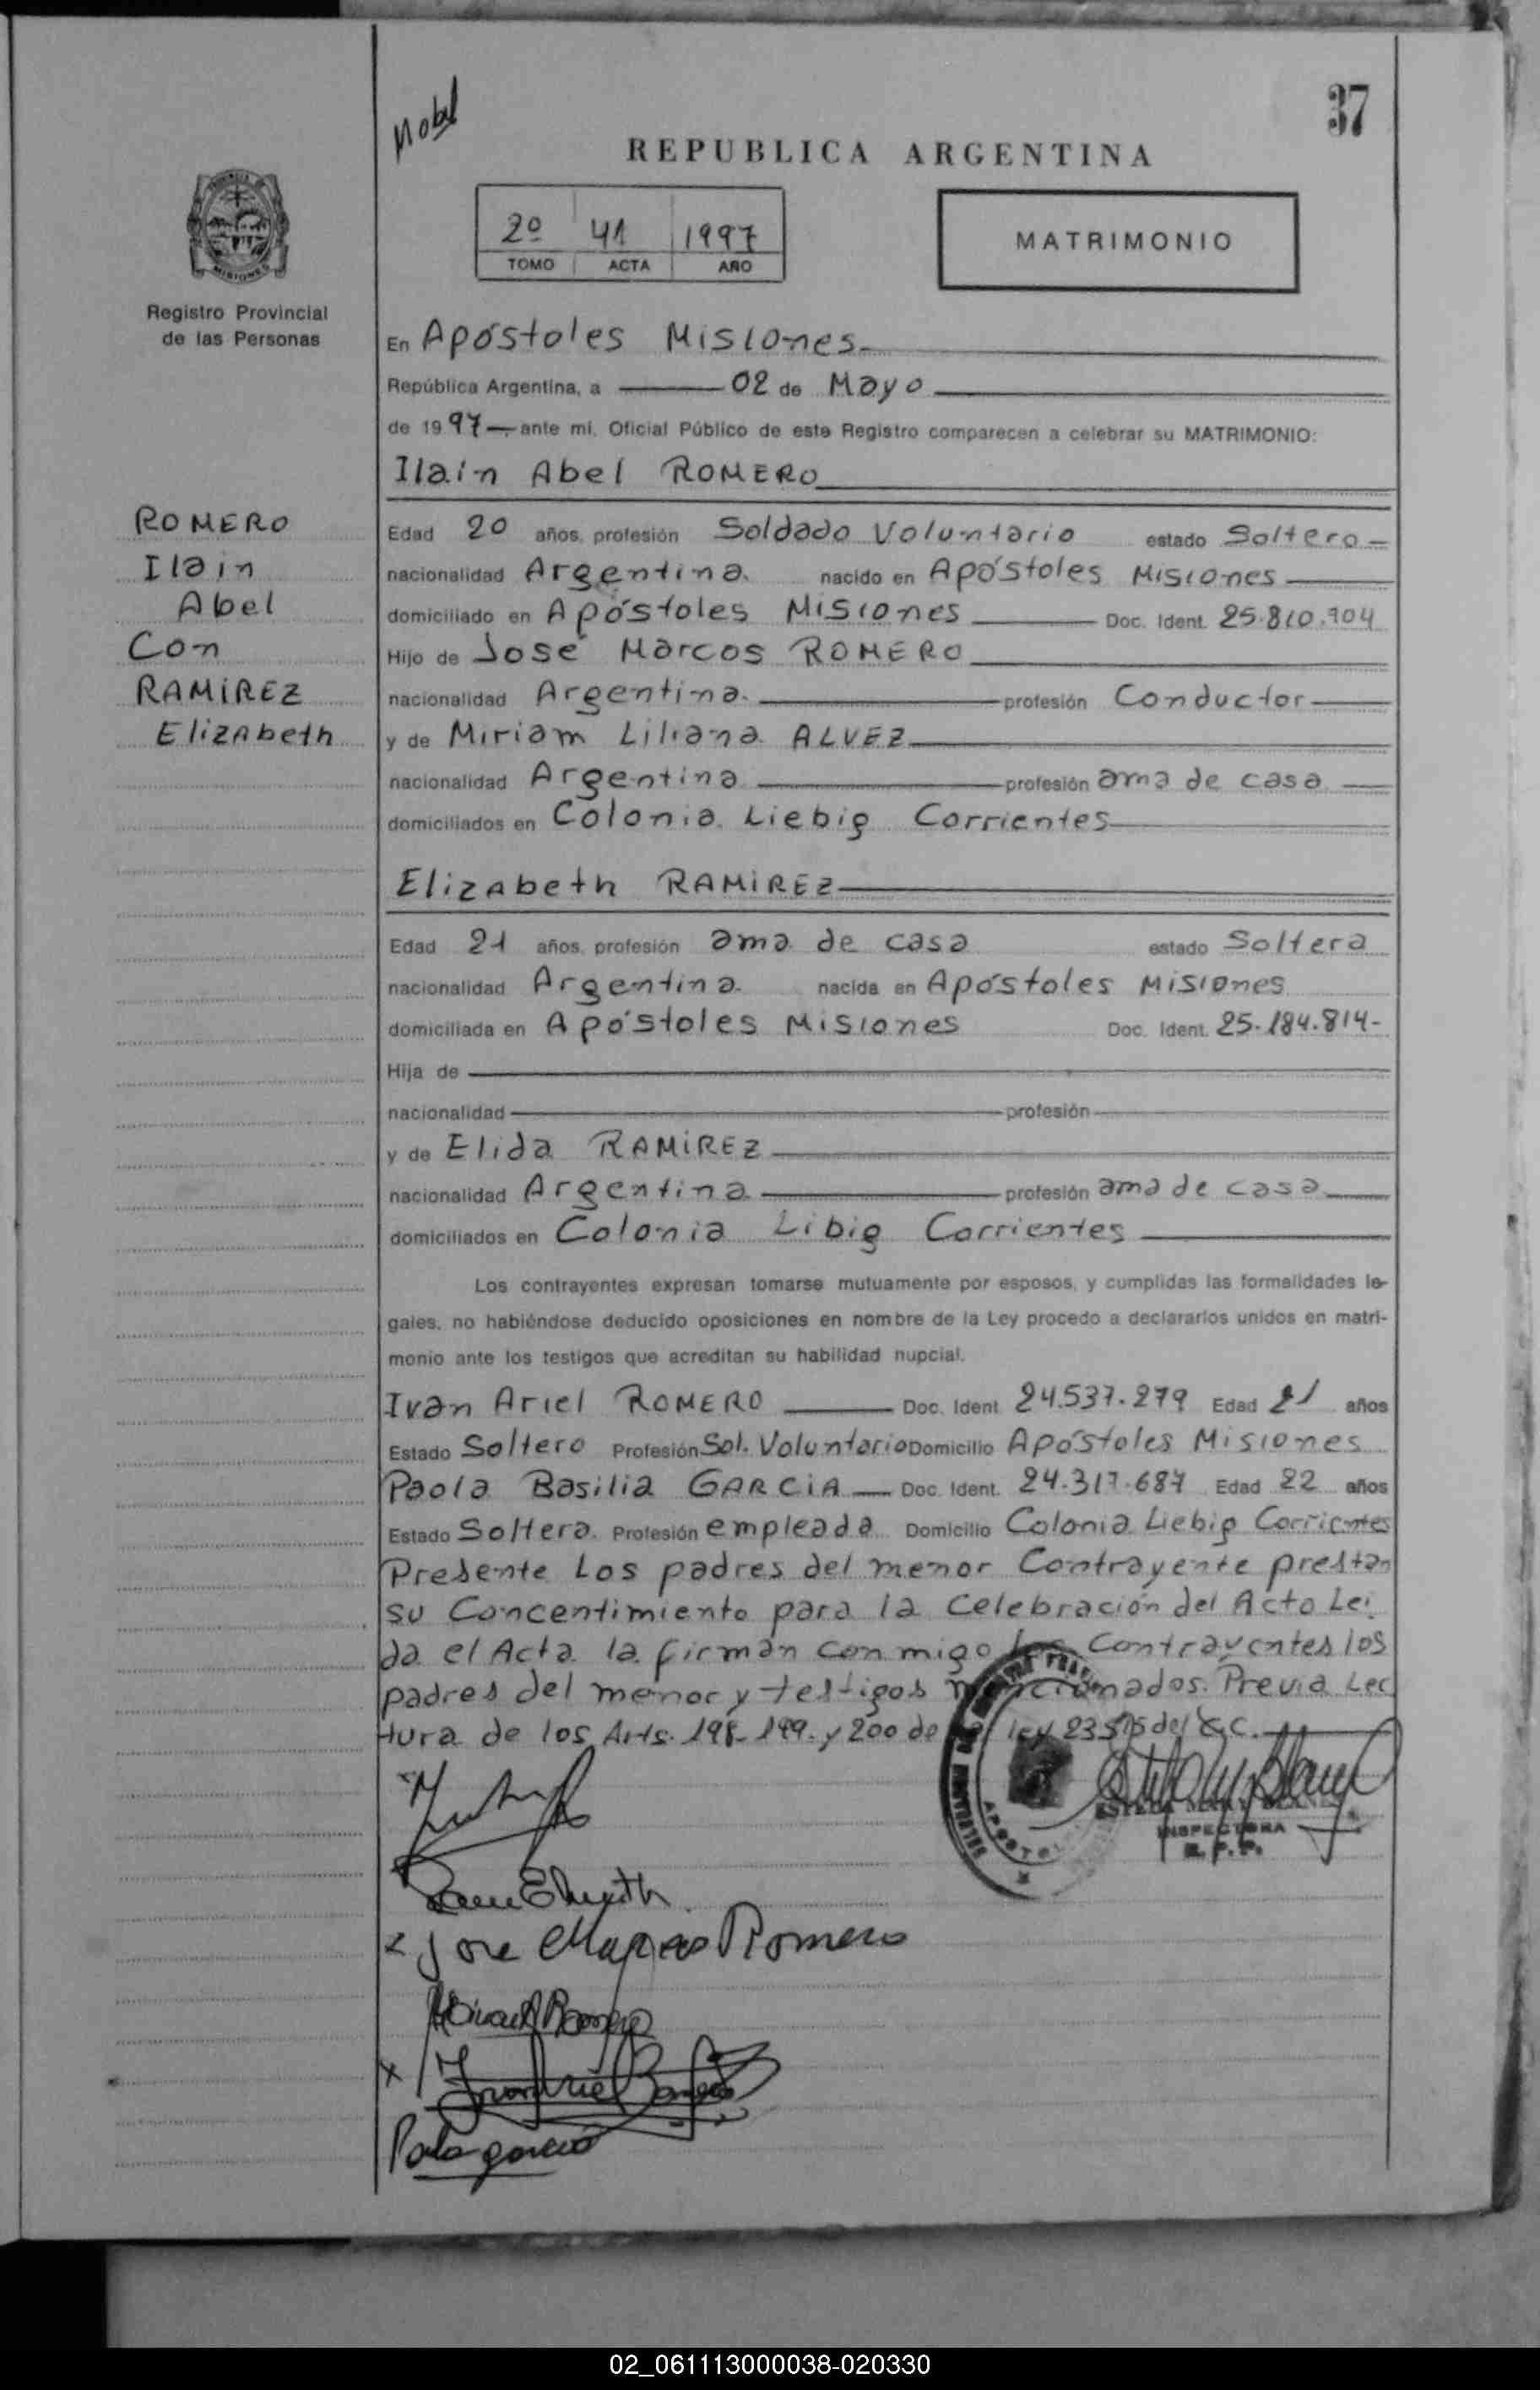 37
Nobel
REPUBLICA ARGENTINA
2º 41 1997
TOMO ACTA AÑO
MATRIMONIO
MISIONES
Registro Provincial
de las Personas
En Apóstoles Misiones
República Argentina, a 02 de Mayo
de 1997 ante mí, Oficial Público de este Registro comparecen a celebrar su MATRIMONIO:
Ilain Abel ROMERO
ROMERO
Ilain
Abel
Con
RAMIREZ
Elizabeth
Edad 20 años, profesión Soldado Voluntario estado Soltero
nacionalidad Argentina nacido en Apóstoles Misiones
domiciliado en Apóstoles Misiones Doc. Ident. 25.810.904
Hijo de José Marcos ROMERO
nacionalidad Argentina profesión Conductor
y de Miriam Liliana ALVEZ
nacionalidad Argentina profesión ama de casa
domiciliados en Colonia Liebig Corrientes
Elizabeth RAMIREZ
Edad 21 años, profesión ama de casa estado Soltera
nacionalidad Argentina nacida en Apóstoles Misiones
domiciliada en Apóstoles Misiones Doc. Ident. 25.184.814-
Hija de
nacionalidad profesión
y de Elida RAMIREZ
nacionalidad Argentina profesión ama de casa
domiciliados en Colonia Libig Corrientes
Los contrayentes expresan tomarse mutuamente por esposos, y cumplidas las formalidades le-
gales, no habiéndose deducido oposiciones en nombre de la Ley procedo a declararlos unidos en matri-
monio ante los testigos que acreditan su habilidad nupcial.
Ivan Ariel ROMERO Doc. Ident. 24.537.279 Edad 21 años
Estado Soltero Profesión Sol. Voluntario Domicilio Apóstoles Misiones
Paola Basilia GARCIA Doc. Ident. 24.317.687 Edad 22 años
Estado Soltera Profesión empleada Domicilio Colonia Liebig Corrientes
Presente Los padres del menor Contrayente prestan
su Concentimiento para la Celebración del Acto Lei
da el Acta la firman conmigo los Contrayentes los
padres del menor y testigos mencionados. Previa Lec
tura de los Arts. 198-199. y 200 de la ley 23515 del C.C.
INSPECTORA
R. P. P.
Jose Marcos Romero
Ivan Ariel Romero
Paola garcia
02_061113000038-020330